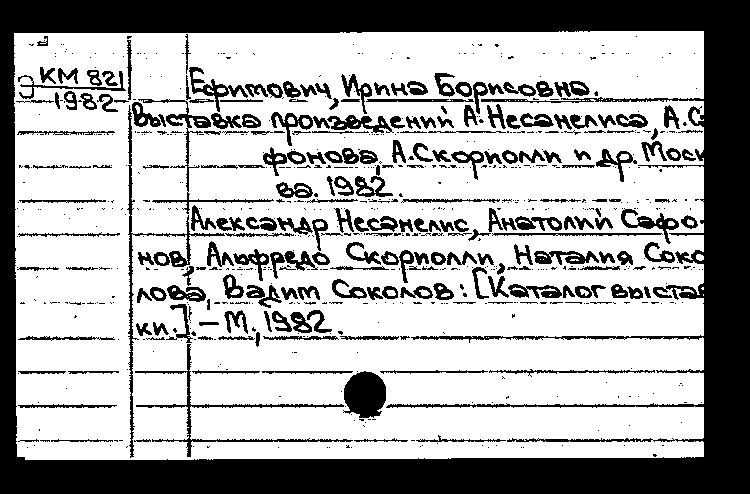 КМ 821
1982
Ефимович, Ирина Борисовна.
Выставка произведений А.Несанелиса, А.С
фонова, А.Скориолли и др. Моск
ва. 1982.
Александр Несанелис, Анатолий Сафо-
нов, Альфредо Скориолли, Наталия Соко
лова, Вадим Соколов: [Каталог выстав
ки.]. – М., 1982.